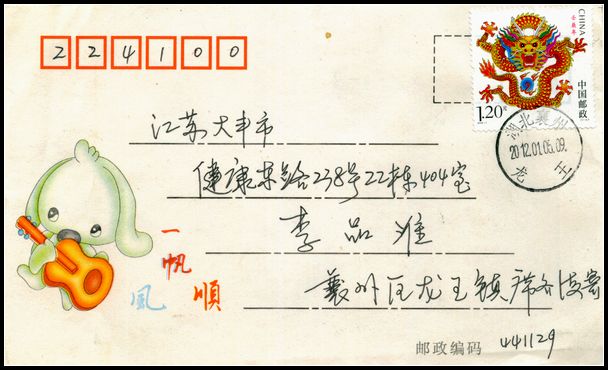 224100
CHINA
壬辰年
中国邮政
1.20元
湖北襄州
2012.01.05.09
龙王
江苏大丰市
健康东路238号22栋404室
李品淮
襄州区龙王镇席各
一帆風順
邮政编码 441129